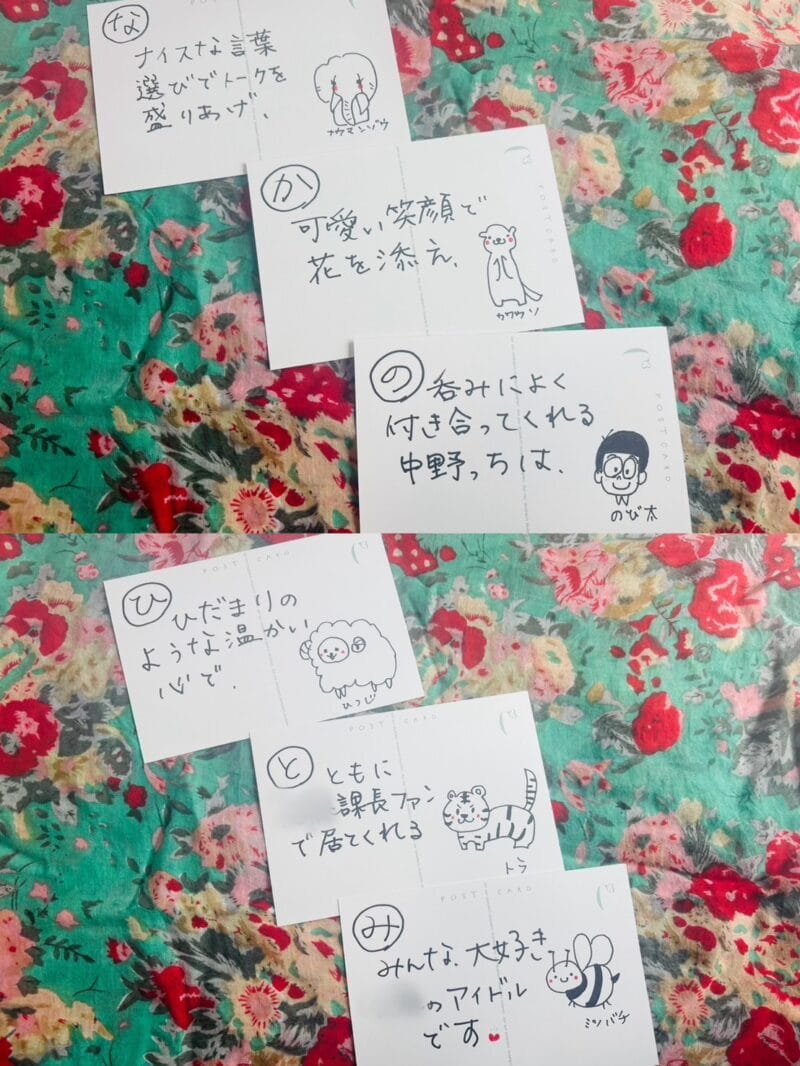 POST CARD
な
ナイスな言葉
選びでトークを
盛りあげ、
ナウマンゾウ
POST CARD
か
可愛い笑顔で
花を添え、
カワウソ
POST CARD
の
呑みによく
付き合ってくれる
中野っちは、
のび太
POST CARD
ひ
ひだまりの
ような温かい
心で、
ひつじ
POST CARD
と
ともに
課長ファン
で居てくれる
トラ
POST CARD
み
みんな、大好き
のアイドル
です
ミツバチ